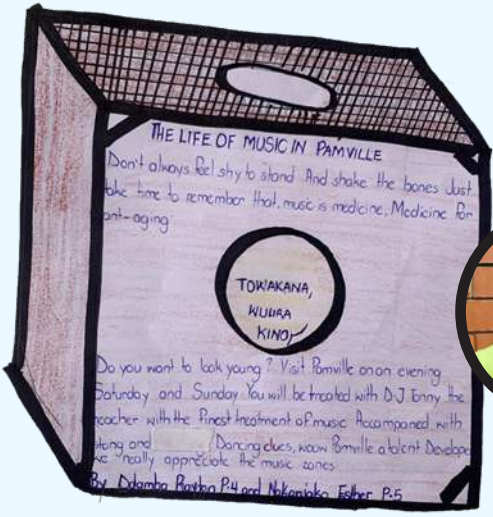 THE LIFE OF MUSIC IN PAMVILLE
Don't always feel shy to stand And shake the bones Just
take time to remember that, music is medicine, Medicine for
ant-aging
TOWAKANA,
WULIRA
KINO,
Do you want to look young? Visit Pamville on an evening
Saturday and Sunday You will be treated with D-J Tonny the
teacher with the finest treatment of music Accompanied with
and Dancing clues, woow Pamville a talent Develope
we really appreciate the music zones
By Ddamba P:4 and Nakanjako Esther P.5